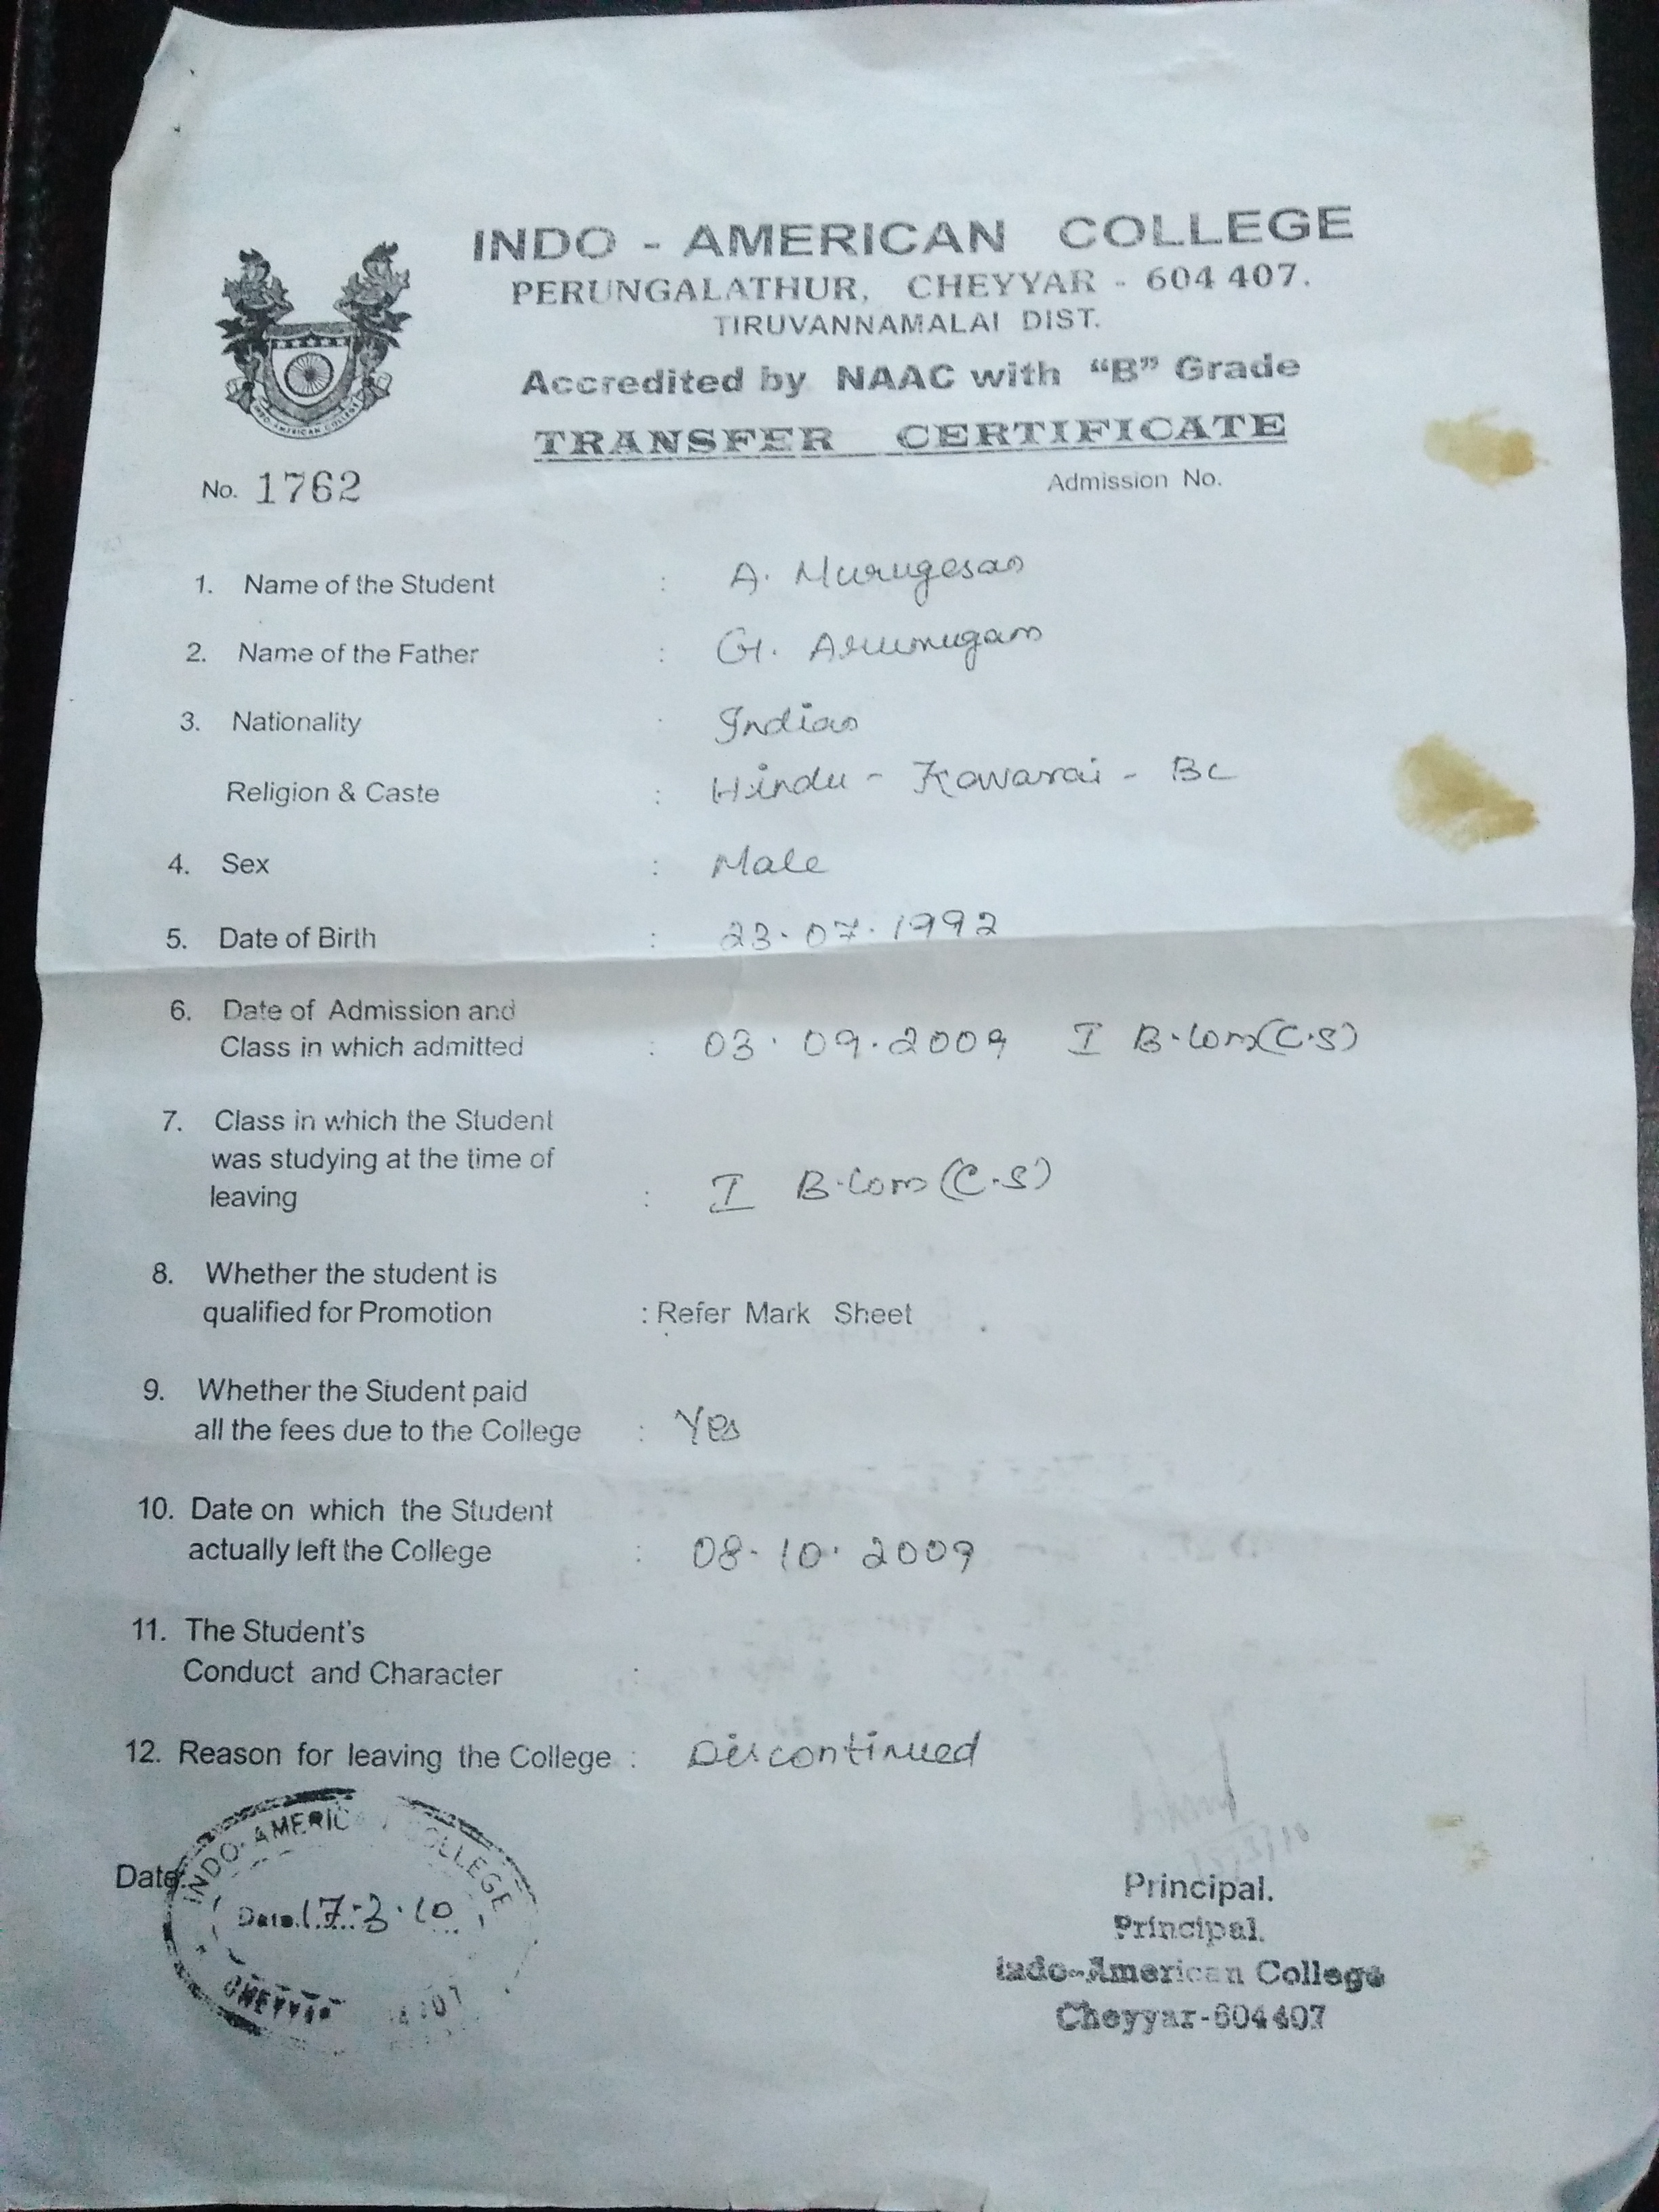 INDO - AMERICAN COLLEGE
PERUNGALATHUR, CHEYYAR - 604 407.
TIRUVANNAMALAI DIST.
Accredited by NAAC with "B" Grade
TRANSFER CERTIFICATE
INDO-AMERICAN COLLEGE
No. 1762 Admission No.
1. Name of the Student : A. Murugesan
2. Name of the Father : G. Arumugam
3. Nationality : Indian
Religion & Caste : Hindu - Kavarai - BC
4. Sex : Male
5. Date of Birth : 23.07.1992
6. Date of Admission and
Class in which admitted : 03.09.2009 I B.Com(C.S)
7. Class in which the Student
was studying at the time of
leaving : I B.Com(C.S)
8. Whether the student is
qualified for Promotion : Refer Mark Sheet
9. Whether the Student paid
all the fees due to the College : Yes
10. Date on which the Student
actually left the College : 08-10.2009
11. The Student's
Conduct and Character :
12. Reason for leaving the College : Discontinued
Date:
INDO-AMERICAN COLLEGE
Date 17-3.10
CHEYYAR
Principal.
Principal.
Indo-American College
Cheyyar-604407